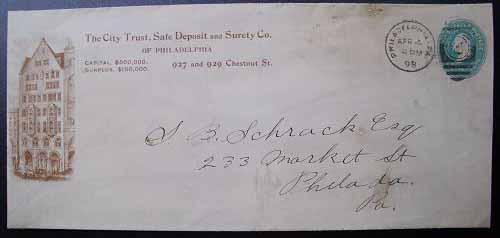 The City Trust, Safe Deposit and Surety Co.
OF PHILADELPHIA
CAPITAL, $500,000.
SURPLUS, $100,000.
927 and 929 Chestnut St.
PHILADELPHIA, PA.
APR
98
S. B. Schrack Esq
233 Market St
Philada.
Pa.